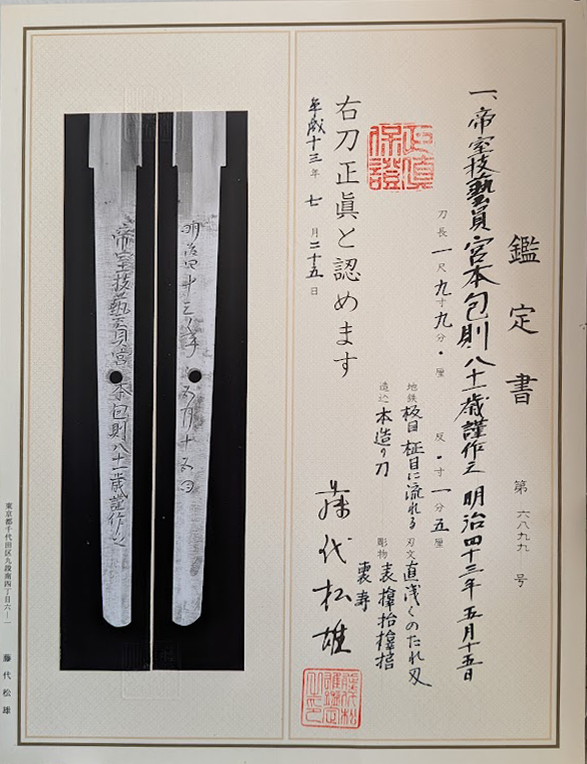 鑑定書
第 六八九九 号
一、帝室技藝員宮本包則八十一歳謹作之 明治四十三年五月十五日
刀長 一尺九寸九分・厘 反・寸一分五厘
地鉄 板目柾目に流れる 刃文 直浅くのたれ刃
造込 本造り刀 彫物 表
裏 寿
正真
保證
右刀正眞と認めます
平成十三年 七月二十五日
藤代松雄
明治四十三年 五月十五日
帝室技藝員宮本包則八十一歳謹作之
東京都千代田区九段南四丁目六ー一
藤代松雄